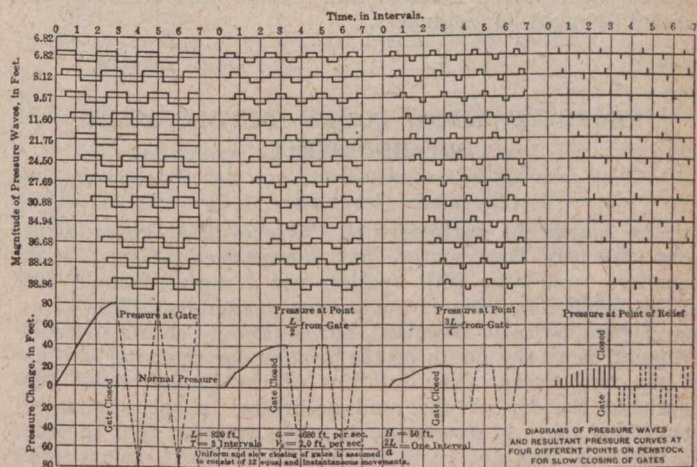 Time, in Intervals.
0 1 2 3 4 5 6 7 0 1 2 3 4 5 6 7 0 1 2 3 4 5 6 7 0 1 2 3 4 5 6 7
Magnitude of Pressure Waves, in Feet.
6.82
6.82
8.12
9.57
11.60
21.75
24.50
27.69
30.88
34.94
36.68
38.42
38.96
Pressure Change, in Feet.
80
60
40
20
0
20
40
60
80
Pressure at Gate
Normal Pressure
Gate Closed
Pressure at Point
from Gate
Gate Closed
Pressure at Point
3L/4 from Gate
Gate Closed
Pressure at Point of Relief
Gate Closed
L = 820 ft. a = 4680 ft. per sec. H = 50 ft.
T = 3 Intervals V₀ = 2.0 ft. per sec. 2L/a = One Interval
Uniform and slow closing of gates is assumed
to consist of 12 equal and instantaneous movements.
DIAGRAMS OF PRESSURE WAVES
AND RESULTANT PRESSURE CURVES AT
FOUR DIFFERENT POINTS ON PENSTOCK
FOR SLOW CLOSING OF GATES